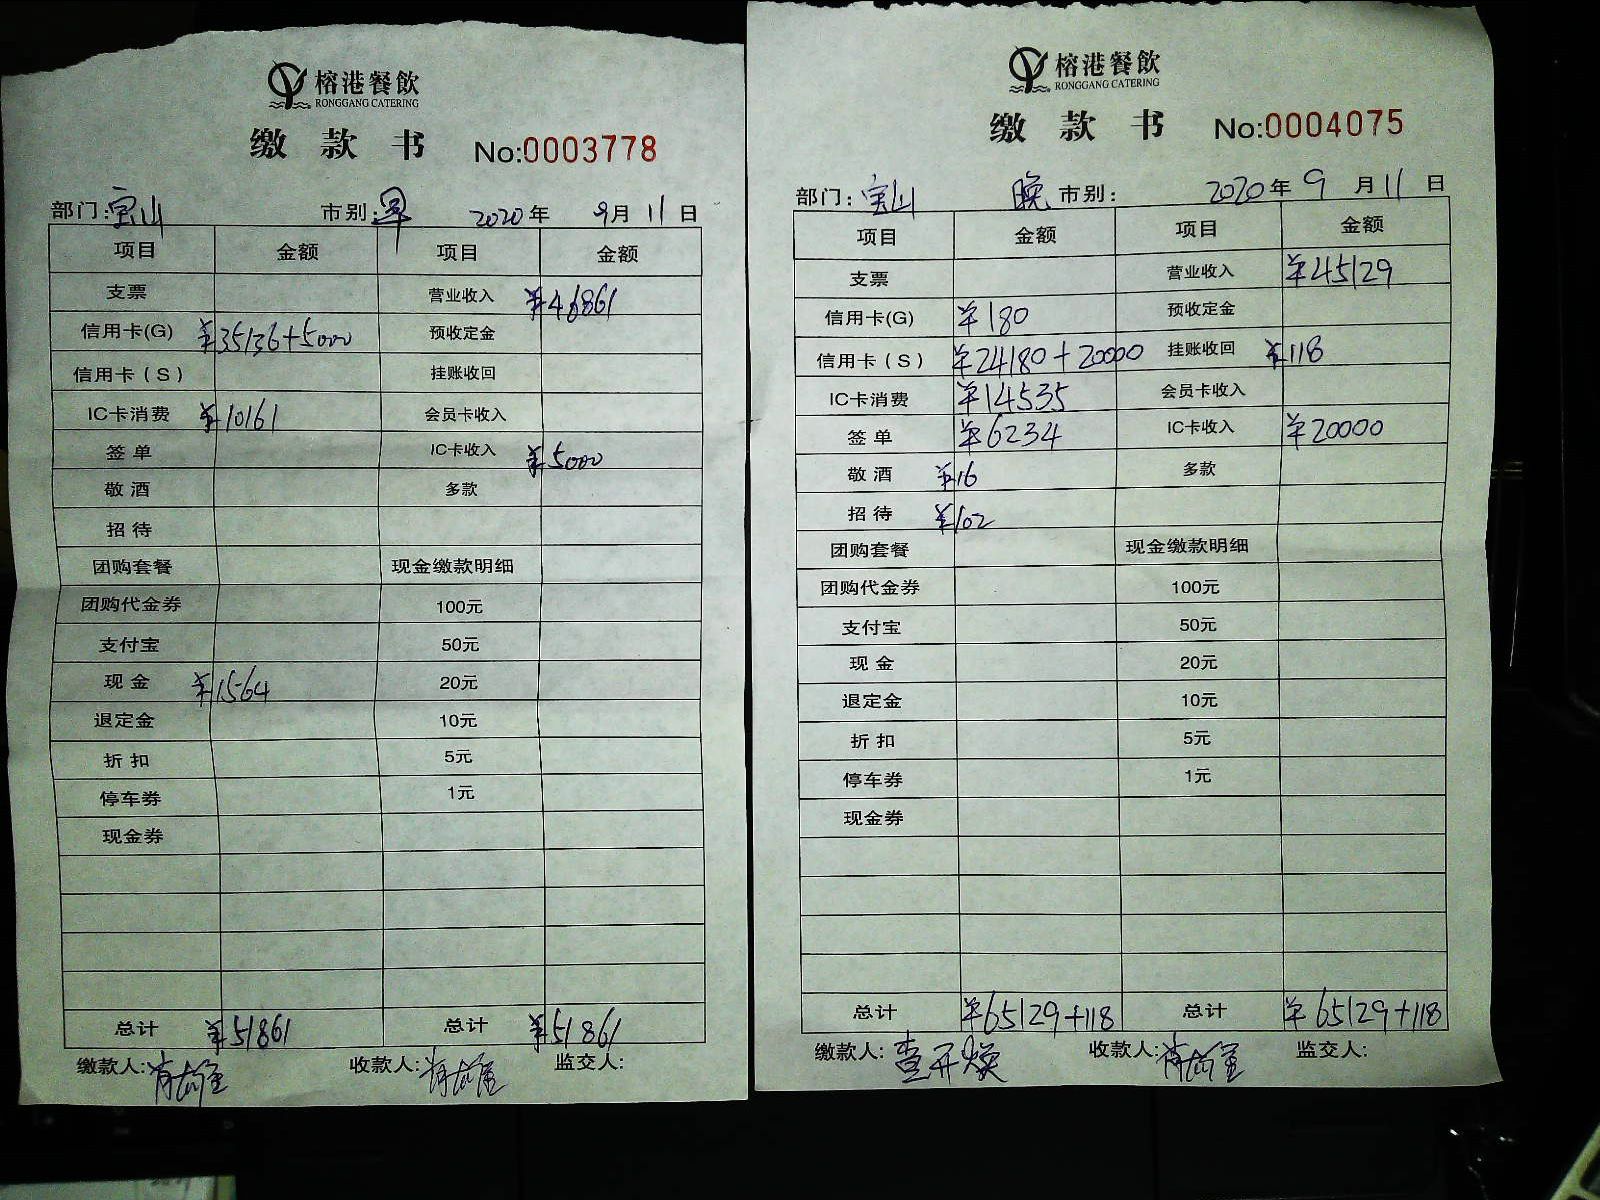 榕港餐飲
RONGGANG CATERING
缴款书 No:0003778
部门:宝山 市别:早 2020年 9月11日
项目 金额 项目 金额
支票 营业收入 ¥46861
信用卡(G) ¥35136+5000 预收定金
信用卡(S) 挂账收回
IC卡消费 ¥10161 会员卡收入
签单 IC卡收入 ¥5000
敬酒 多款
招待
团购套餐 现金缴款明细
团购代金券 100元
支付宝 50元
现金 ¥1564 20元
退定金 10元
折扣 5元
停车券 1元
现金券
总计 ¥51861 总计 ¥51861
缴款人: 收款人: 监交人:
榕港餐飲
RONGGANG CATERING
缴款书 No:0004075
部门:宝山 晚市别: 2020年9月11日
项目 金额 项目 金额
支票 营业收入 ¥45129
信用卡(G) ¥180 预收定金
信用卡(S) ¥24180+20000 挂账收回 ¥118
IC卡消费 ¥14535 会员卡收入
签单 ¥6234 IC卡收入 ¥20000
敬酒 ¥16 多款
招待 ¥102
团购套餐 现金缴款明细
团购代金券 100元
支付宝 50元
现金 20元
退定金 10元
折扣 5元
停车券 1元
现金券
总计 ¥65129+118 总计 ¥65129+118
缴款人:查开焕 收款人: 监交人: